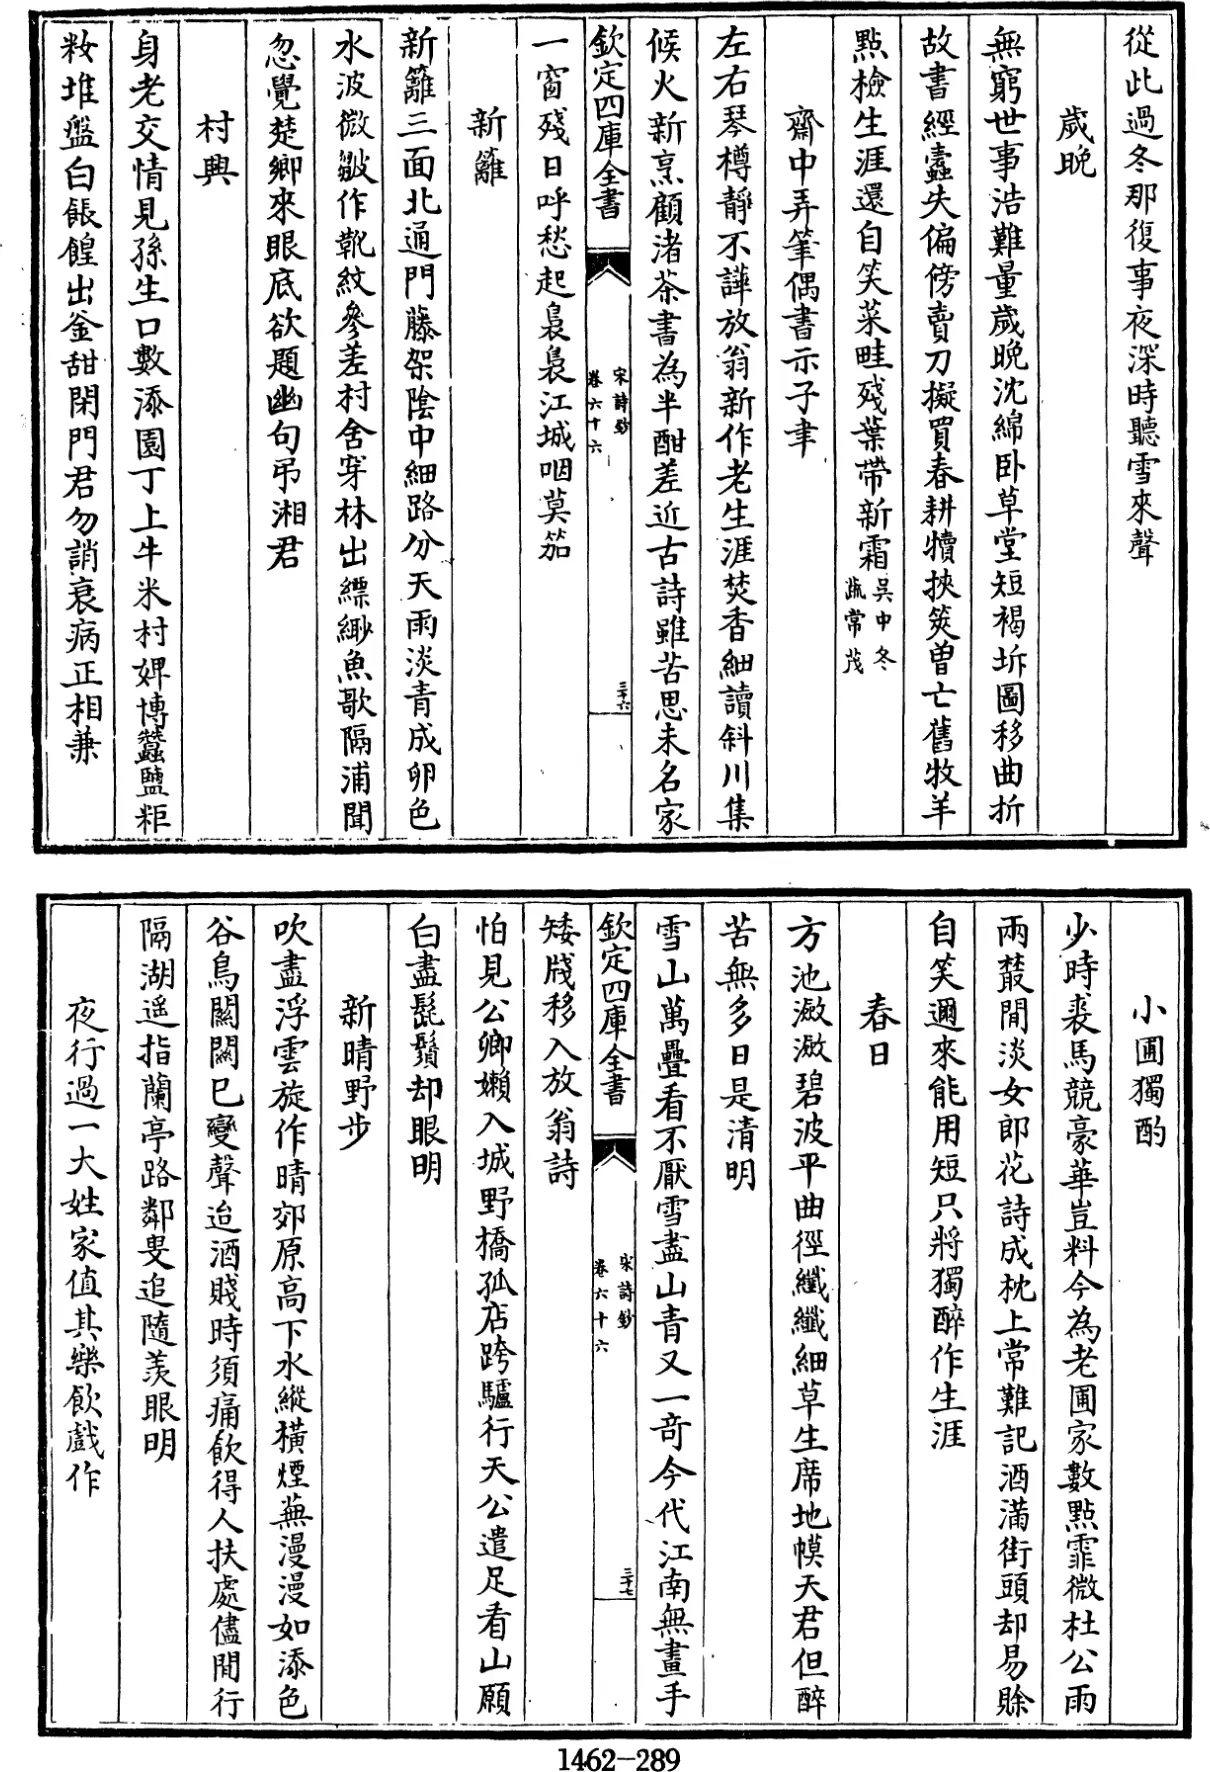 從此過冬那復事夜深時聽雪來聲
歲晩
無窮世事浩難量歲晩沈綿卧草堂短褐坼圖移曲折
故書經蠧失偏傍賣刀擬買春耕犢挾筴曽亡舊牧羊
點檢生涯還自笑菜畦殘葉帶新霜吳中冬
蔬常茂
齋中弄筆偶書示子聿
左右琴樽靜不譁放翁新作老生涯焚香細讀斜川集
候火新烹顧渚茶書為半酣差近古詩雖苦思未名家
欽定四庫全書
宋詩鈔
卷六十六
三十六
一窗殘日呼愁起裊裊江城咽莫笳
新籬
新籬三面北通門藤架陰中細路分天雨淡青成卵色
水波微皺作靴紋參差村舍穿林出縹緲魚歌隔浦聞
忽覺楚鄉來眼底欲題幽句弔湘君
村興
身老交情見孫生口數添園丁上牛米村婢博蠶鹽粔
籹堆盤白餦餭出釜甜閉門君勿誚衰病正相兼
小圃獨酌
少時裘馬競豪華豈料今為老圃家數點霏微杜公雨
兩叢閒淡女郎花詩成枕上常難記酒滿街頭却易賒
自笑邇來能用短只將獨醉作生涯
春日
方池瀲瀲碧波平曲徑纖纖細草生席地幙天君但醉
苦無多日是清明
雪山萬疊看不厭雪盡山青又一奇今代江南無畫手
欽定四庫全書
宋詩鈔
卷六十六
三十七
矮牋移入放翁詩
怕見公卿嬾入城野橋孤店跨驢行天公遣足看山願
白盡髭鬚却眼明
新晴野步
吹盡浮雲旋作晴郊原高下水縱横煙蕪漫漫如添色
谷鳥關關已變聲迨酒賤時須痛飲得人扶處儘閒行
隔湖遥指蘭亭路鄰叟追隨羡眼明
夜行過一大姓家值其樂飲戲作
1462-289